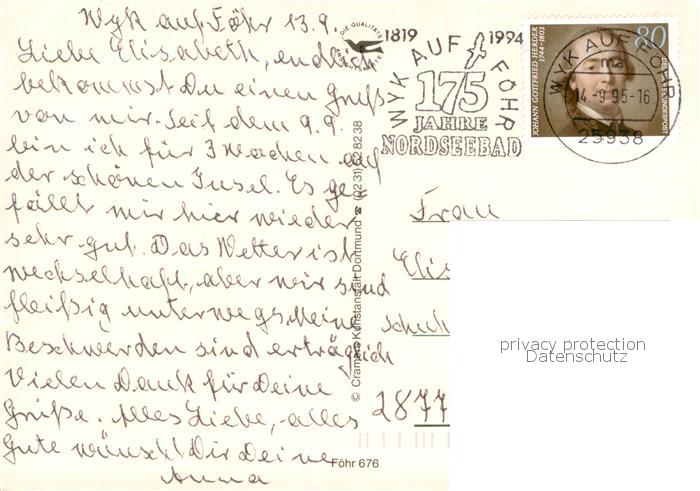 Wyk auf Föhr 13.9.
Liebe Elisabeth, endlich
bekommst Du einen Gruß
von mir. Seit dem 9.9.
bin ich für 3 Wochen auf
der schönen Insel. Es ge-
fällt mir hier wieder
sehr gut. Das Wetter ist
wechselhaft, aber wir sind
fleißig unterwegs. Meine
Beschwerden sind erträglich
Vielen Dank für Deine
Grüße. Alles Liebe, alles
Gute wünscht Dir Deine
Anna
DIE QUALITÄTS
1819 1994
WYK AUF FÖHR
175
JAHRE
NORDSEEBAD
JOHANN GOTTFRIED HERDER
1744-1803
80
DEUTSCHE BUNDESPOST
WYK AUF FÖHR
ma
14.-9.95-16
25938
© Cramers Kunstanstalt Dortmund ☎ (0231) 8238
Frau
Elis
Schul
2877
privacy protection
Datenschutz
Föhr 676